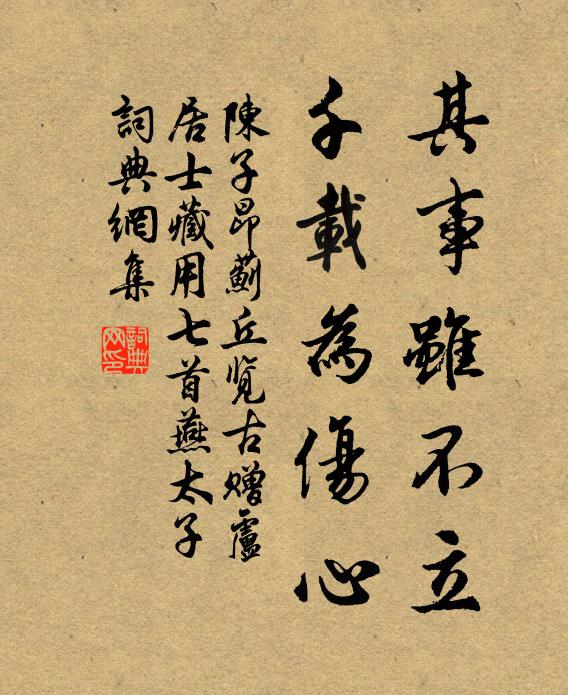 其事雖不立
千載為傷心
陳子昂薊丘览古赠盧
居士藏用七首燕太子
詞典網集
詞典
网印